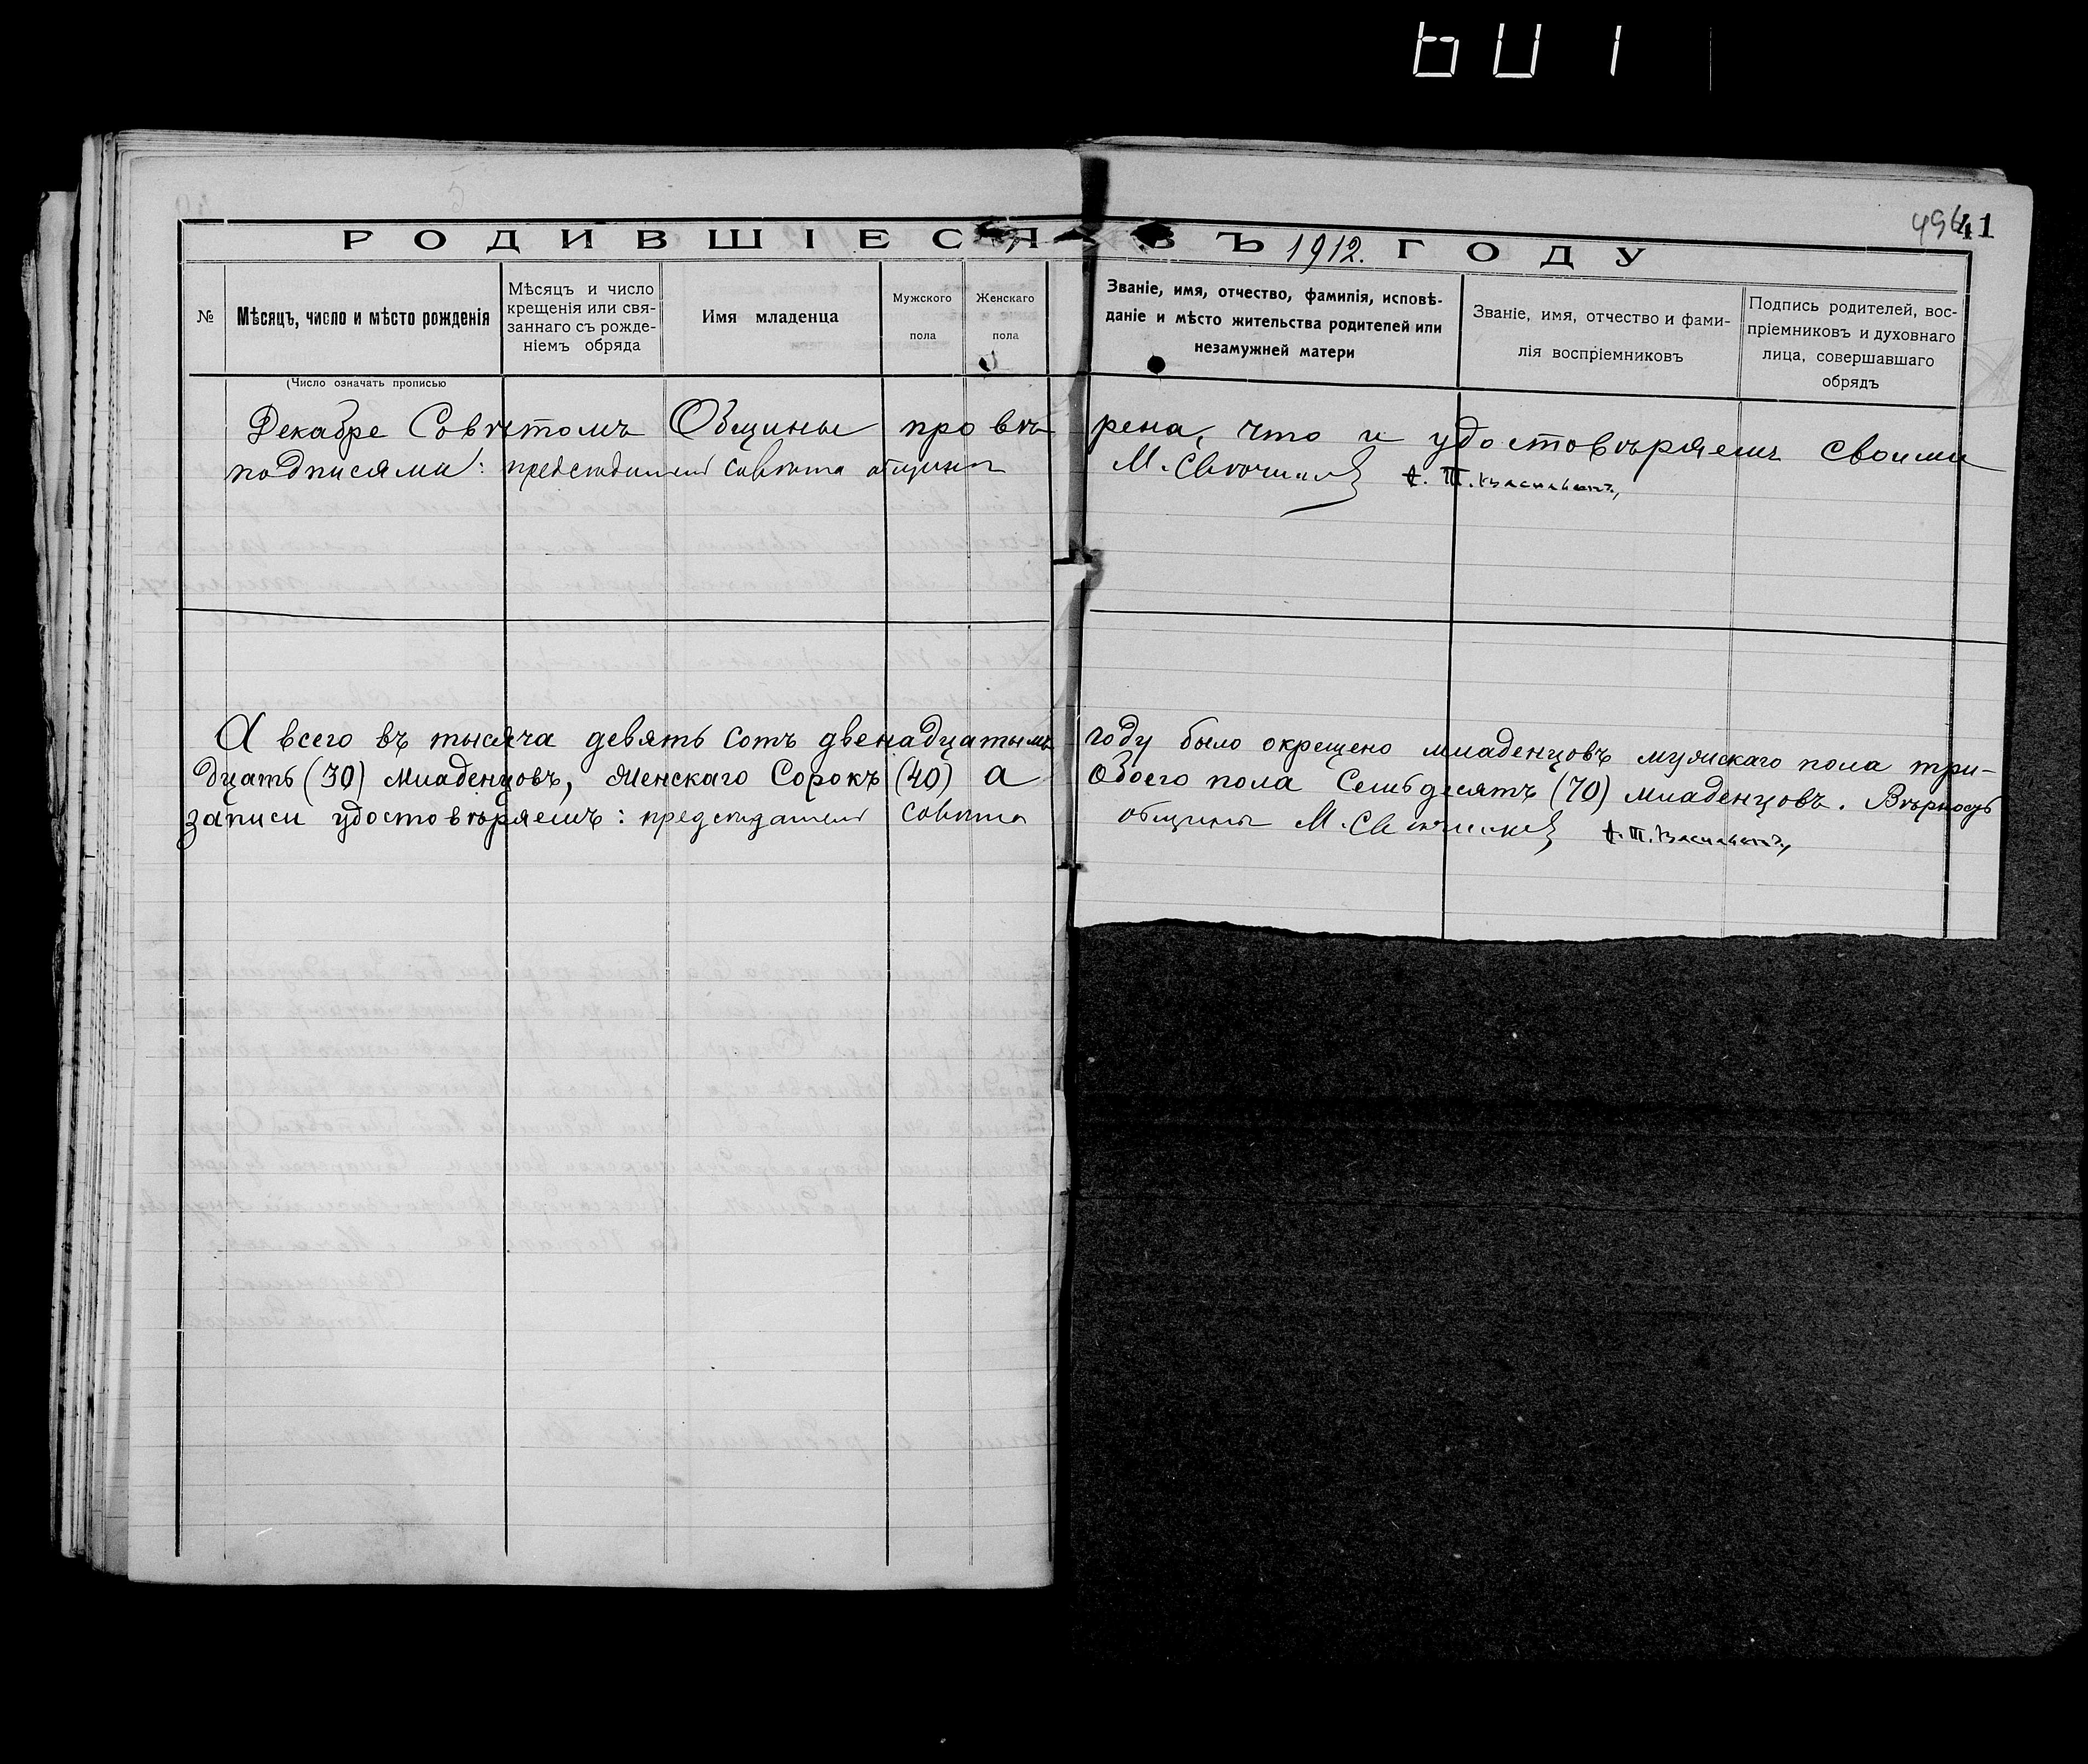 601
49641
РОДИВШІЕСЯ ВЪ 1912. ГОДУ
№
Мѣсяцъ, число и мѣсто рожденія
Мѣсяцъ и число
крещенія или свя-
заннаго съ рожде-
ніемъ обряда
Имя младенца
Мужского
пола
Женскаго
пола
Званіе, имя, отчество, фамилія, исповѣ-
даніе и мѣсто жительства родителей или
незамужней матери
Званіе, имя, отчество и фами-
лія воспріемниковъ
Подпись родителей, вос-
пріемниковъ и духовнаго
лица, совершавшаго
обрядъ
(Число означать прописью
Декабре Совѣтомъ Общины провѣ рена, что и удостовѣряемъ своими
подписями: председатель совѣта общины М.
А всего въ тысяча девять сотъ двенадцатымъ году было окрещено младенцовъ мужскаго пола три-
дцать (30) младенцовъ, женскаго Сорокъ (40) а обоего пола Семьдесятъ (70) младенцовъ. Вѣрность
записи удостовѣряемъ: председатель совѣта общины М.